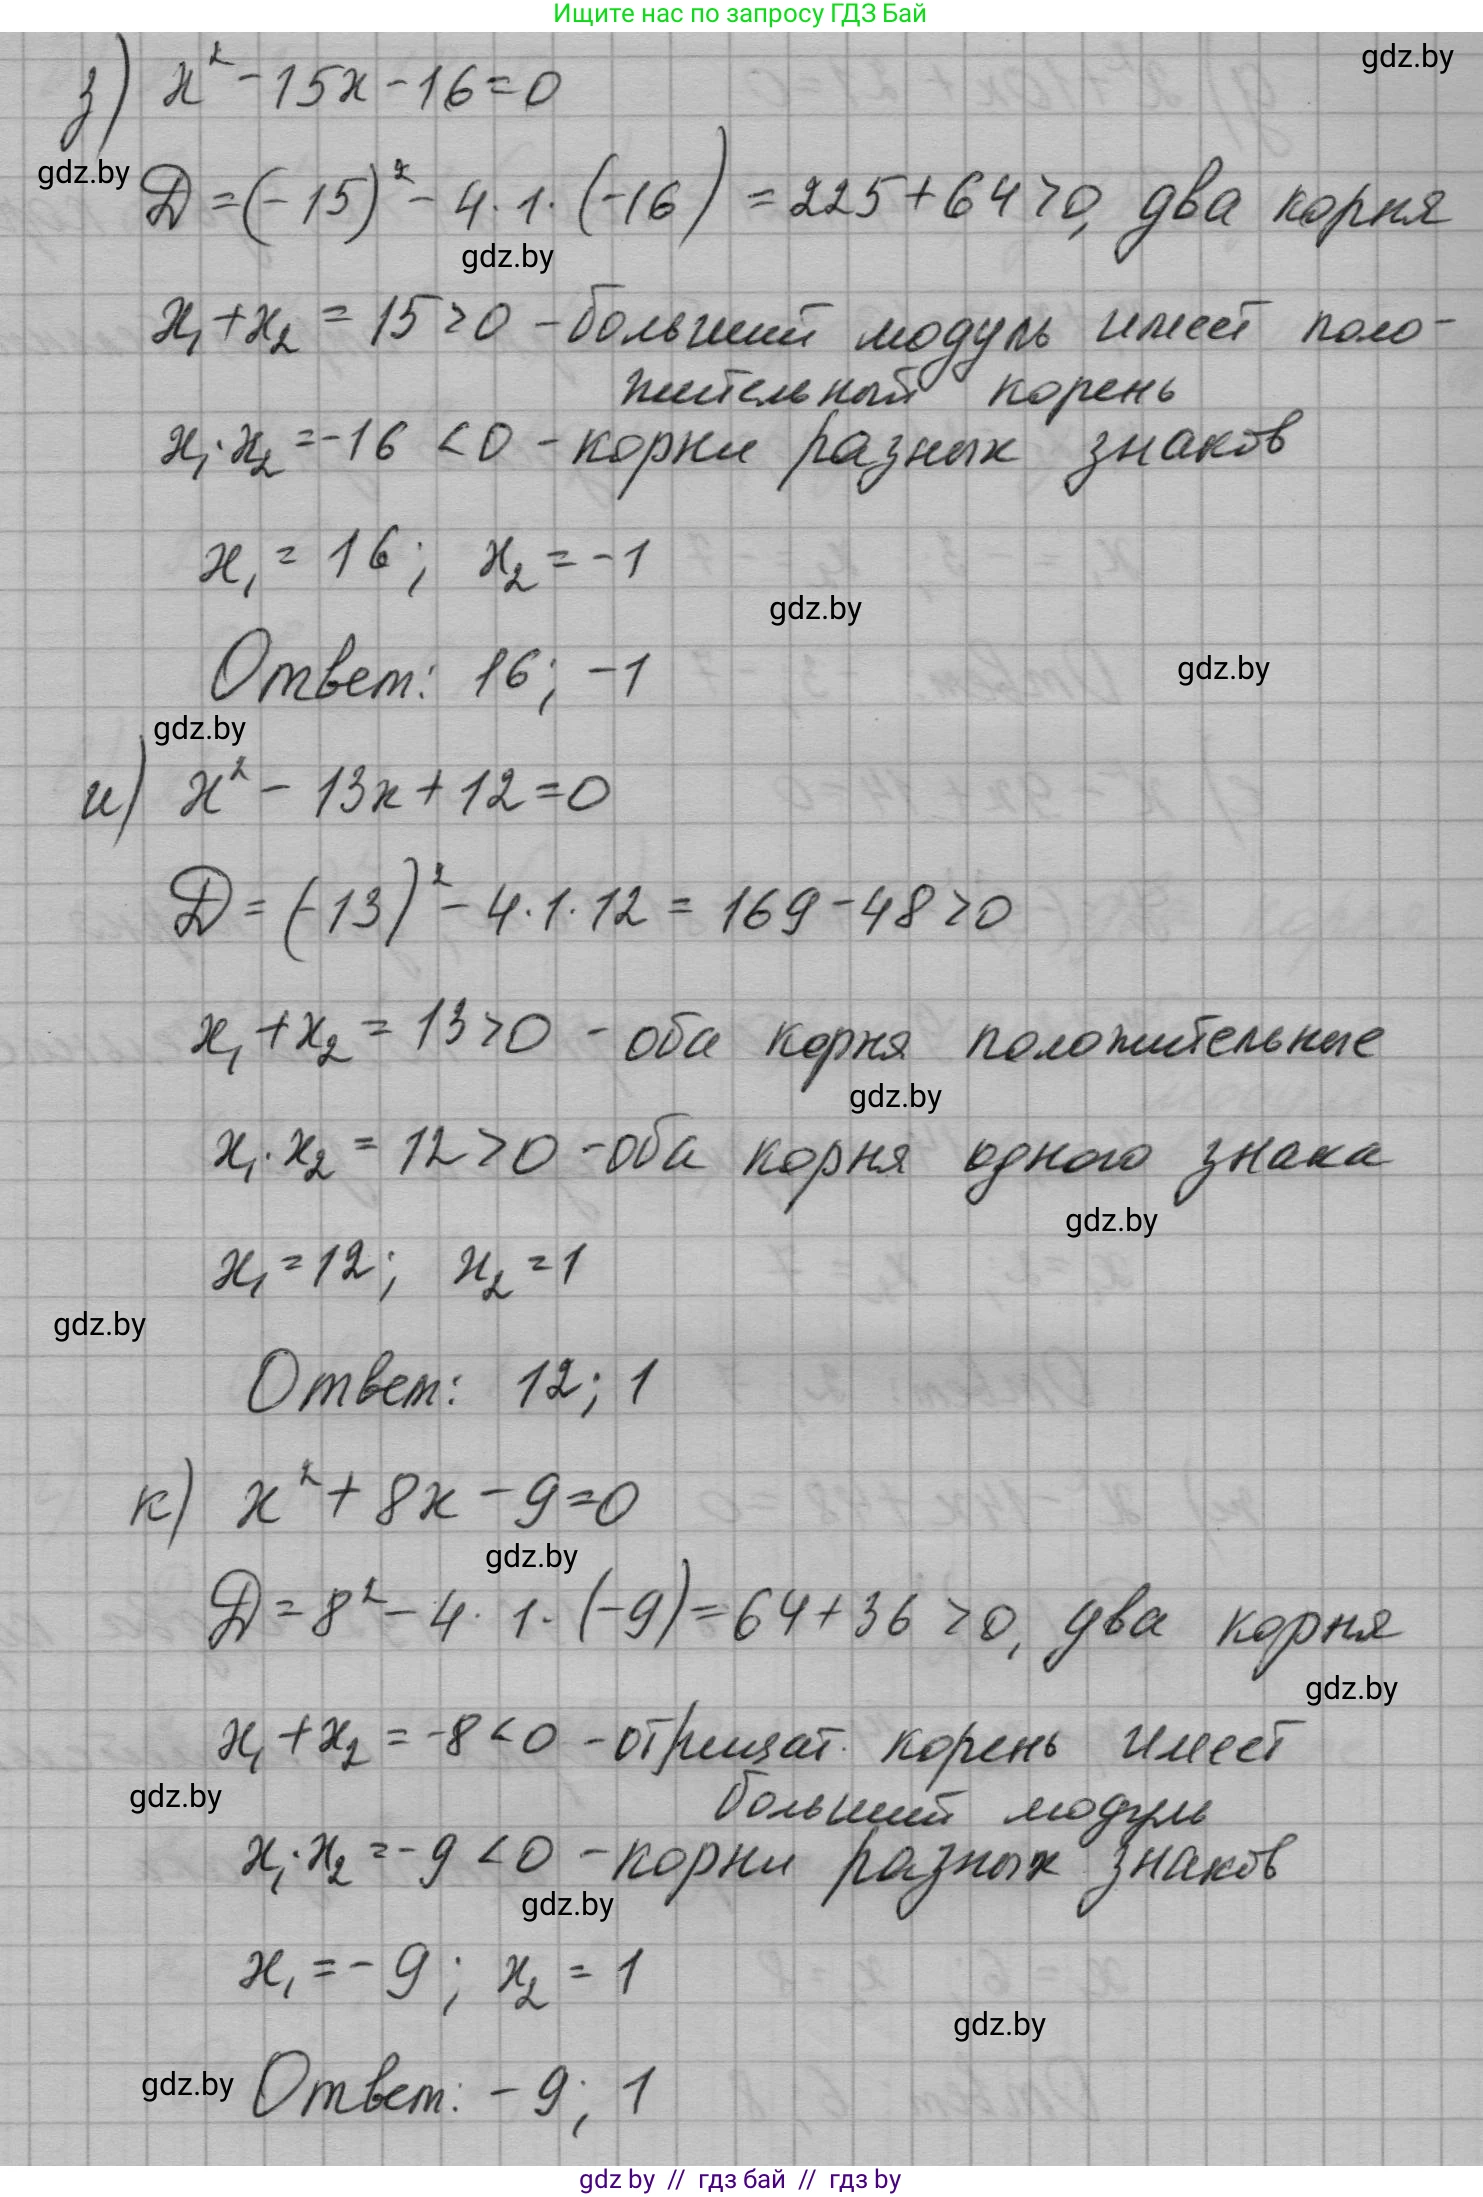 Ищите нас по запросу ГДЗ Бай
gdz.by
з) x² - 15x - 16 = 0
gdz.by
D = (-15)² - 4·1·(-16) = 225 + 64 > 0, два корня
gdz.by
x₁ + x₂ = 15 > 0 - больший модуль имеет поло-
жительный корень
x₁·x₂ = -16 < 0 - корни разных знаков
x₁ = 16; x₂ = -1
gdz.by
Ответ: 16; -1
gdz.by
gdz.by
и) x² - 13x + 12 = 0
D = (-13)² - 4·1·12 = 169 - 48 > 0
x₁ + x₂ = 13 > 0 - оба корня положительные
gdz.by
x₁·x₂ = 12 > 0 - оба корня одного знака
gdz.by
x₁ = 12; x₂ = 1
gdz.by
Ответ: 12; 1
к) x² + 8x - 9 = 0
gdz.by
D = 8² - 4·1·(-9) = 64 + 36 > 0, два корня
gdz.by
x₁ + x₂ = -8 < 0 - отрицат. корень имеет
gdz.by
больший модуль
x₁·x₂ = -9 < 0 - корни разных знаков
gdz.by
x₁ = -9; x₂ = 1
gdz.by
gdz.by
Ответ: -9; 1
gdz by // гдз бай // гдз by